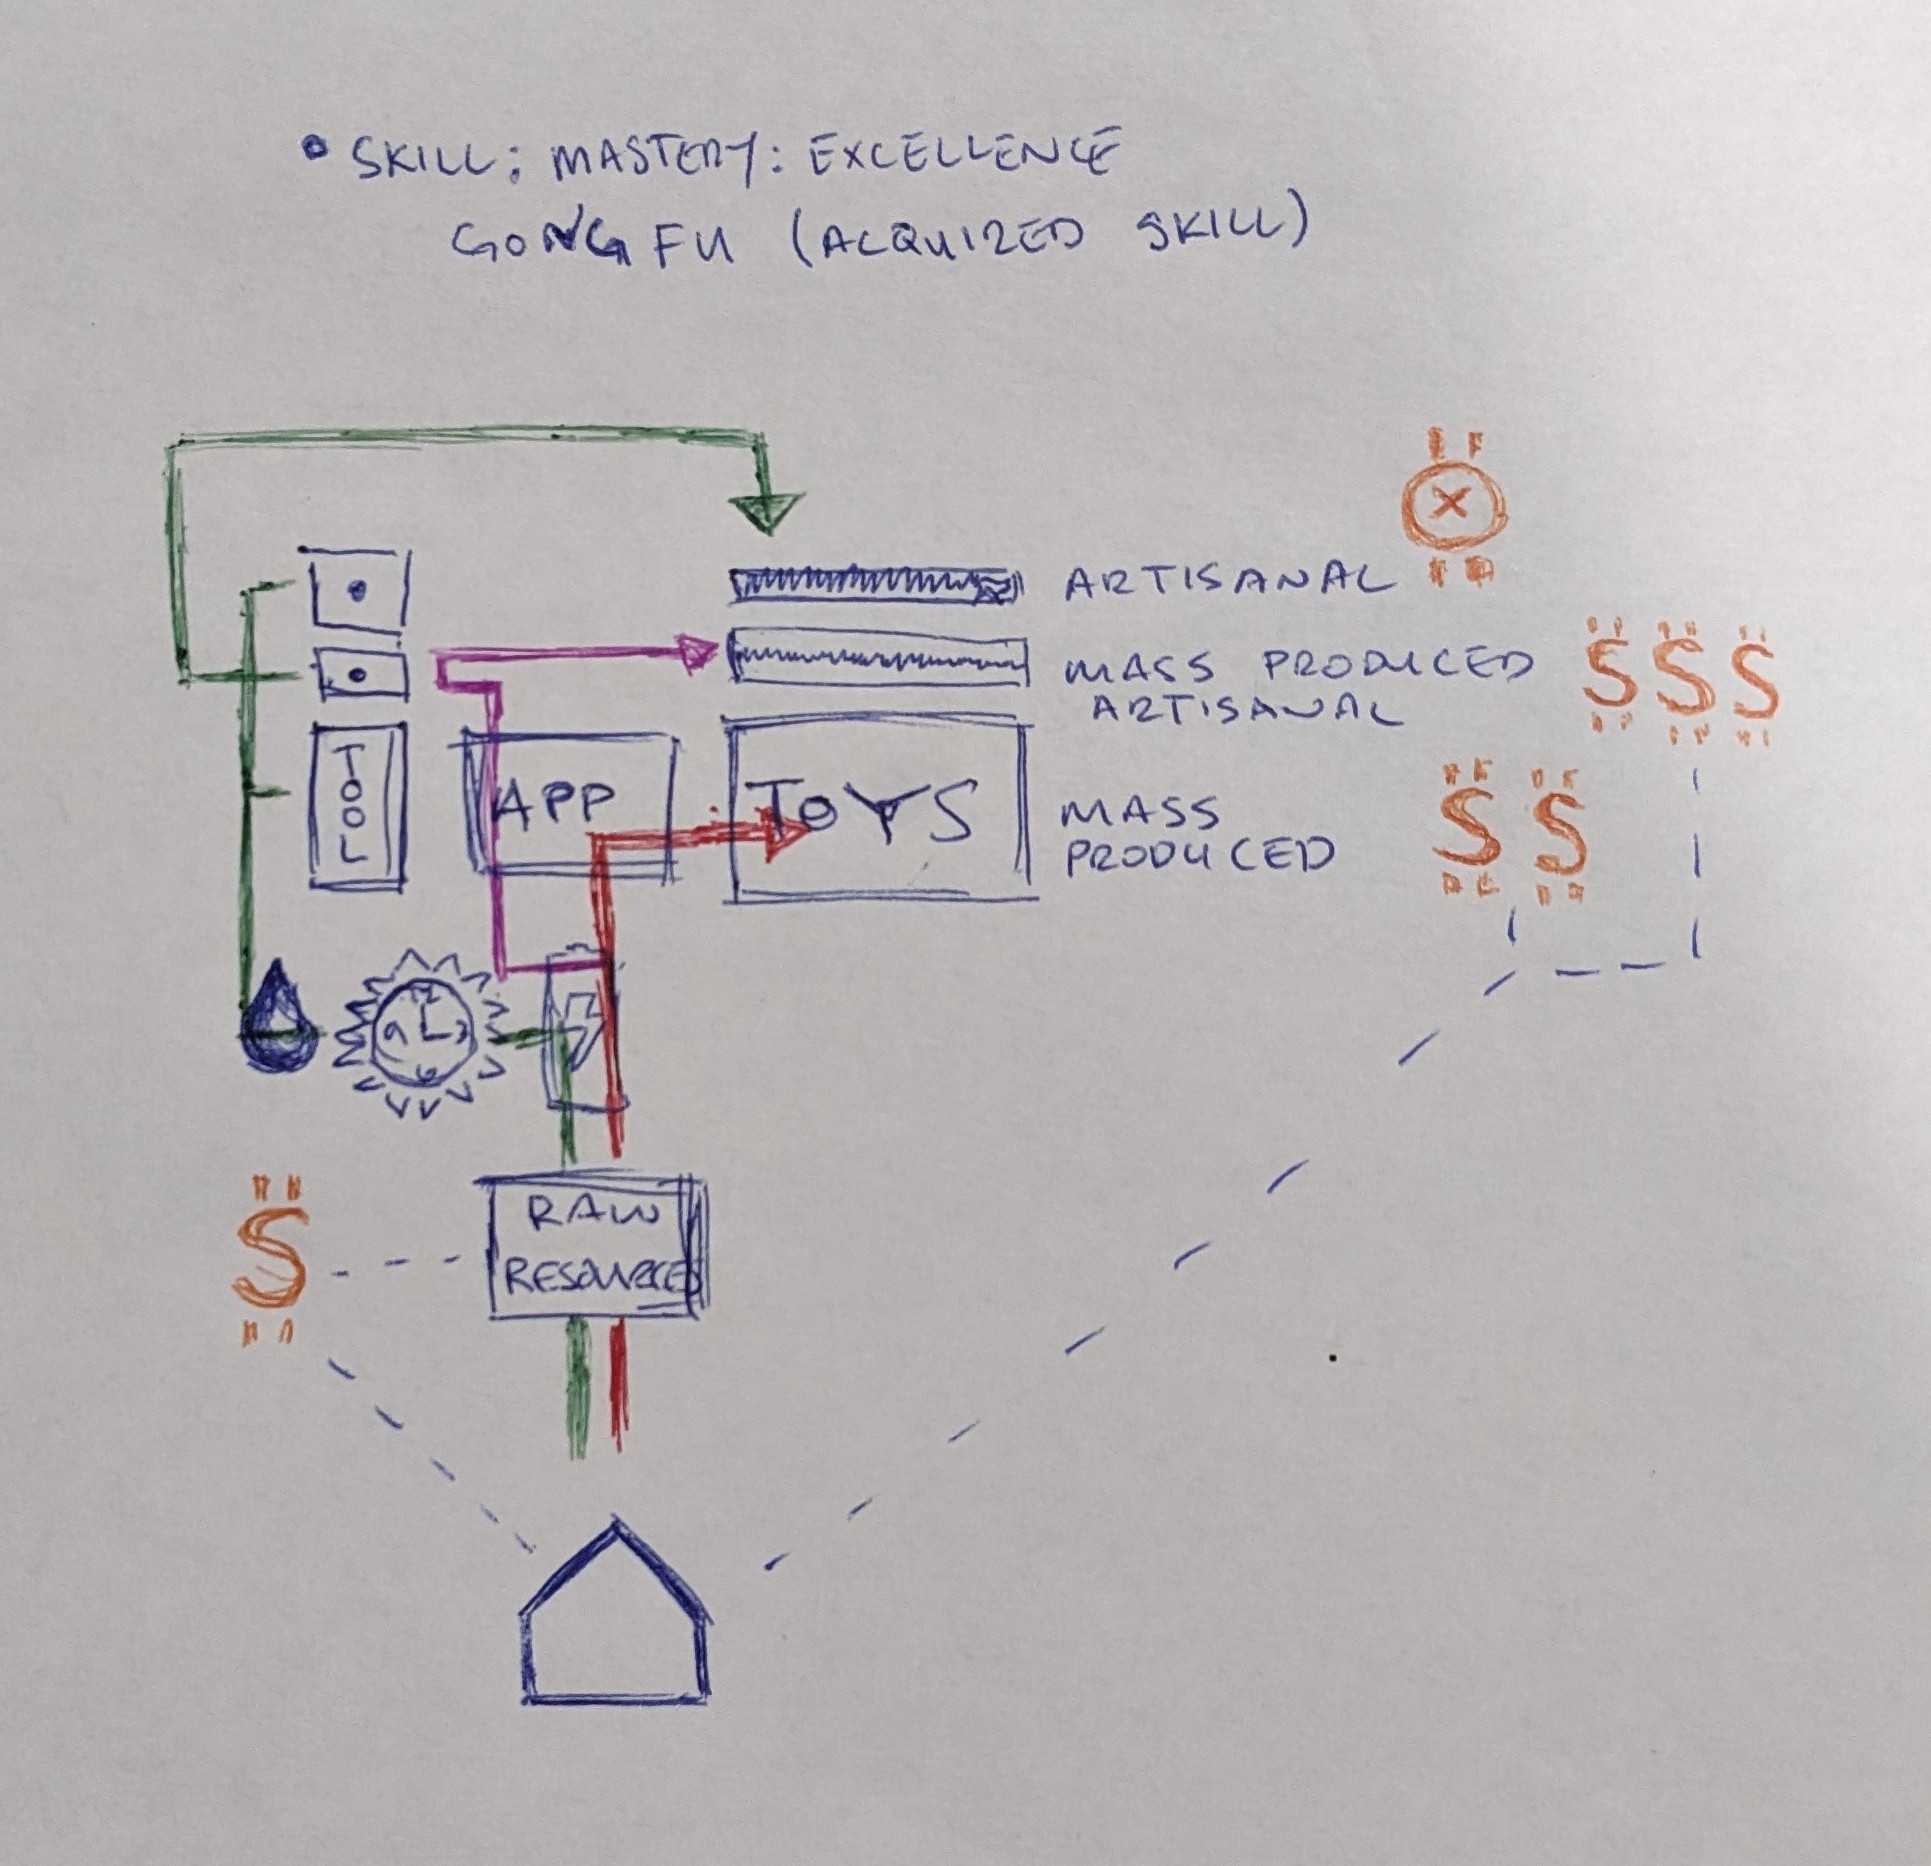 • SKILL: MASTERY: EXCELLENCE
GONG FU (ACQUIRED SKILL)
X
ARTISANAL
MASS PRODUCED
ARTISANAL
S S S
TOOL
APP
TOYS
MASS
PRODUCED
S S
12
9 3
6
RAW
RESOURCES
S